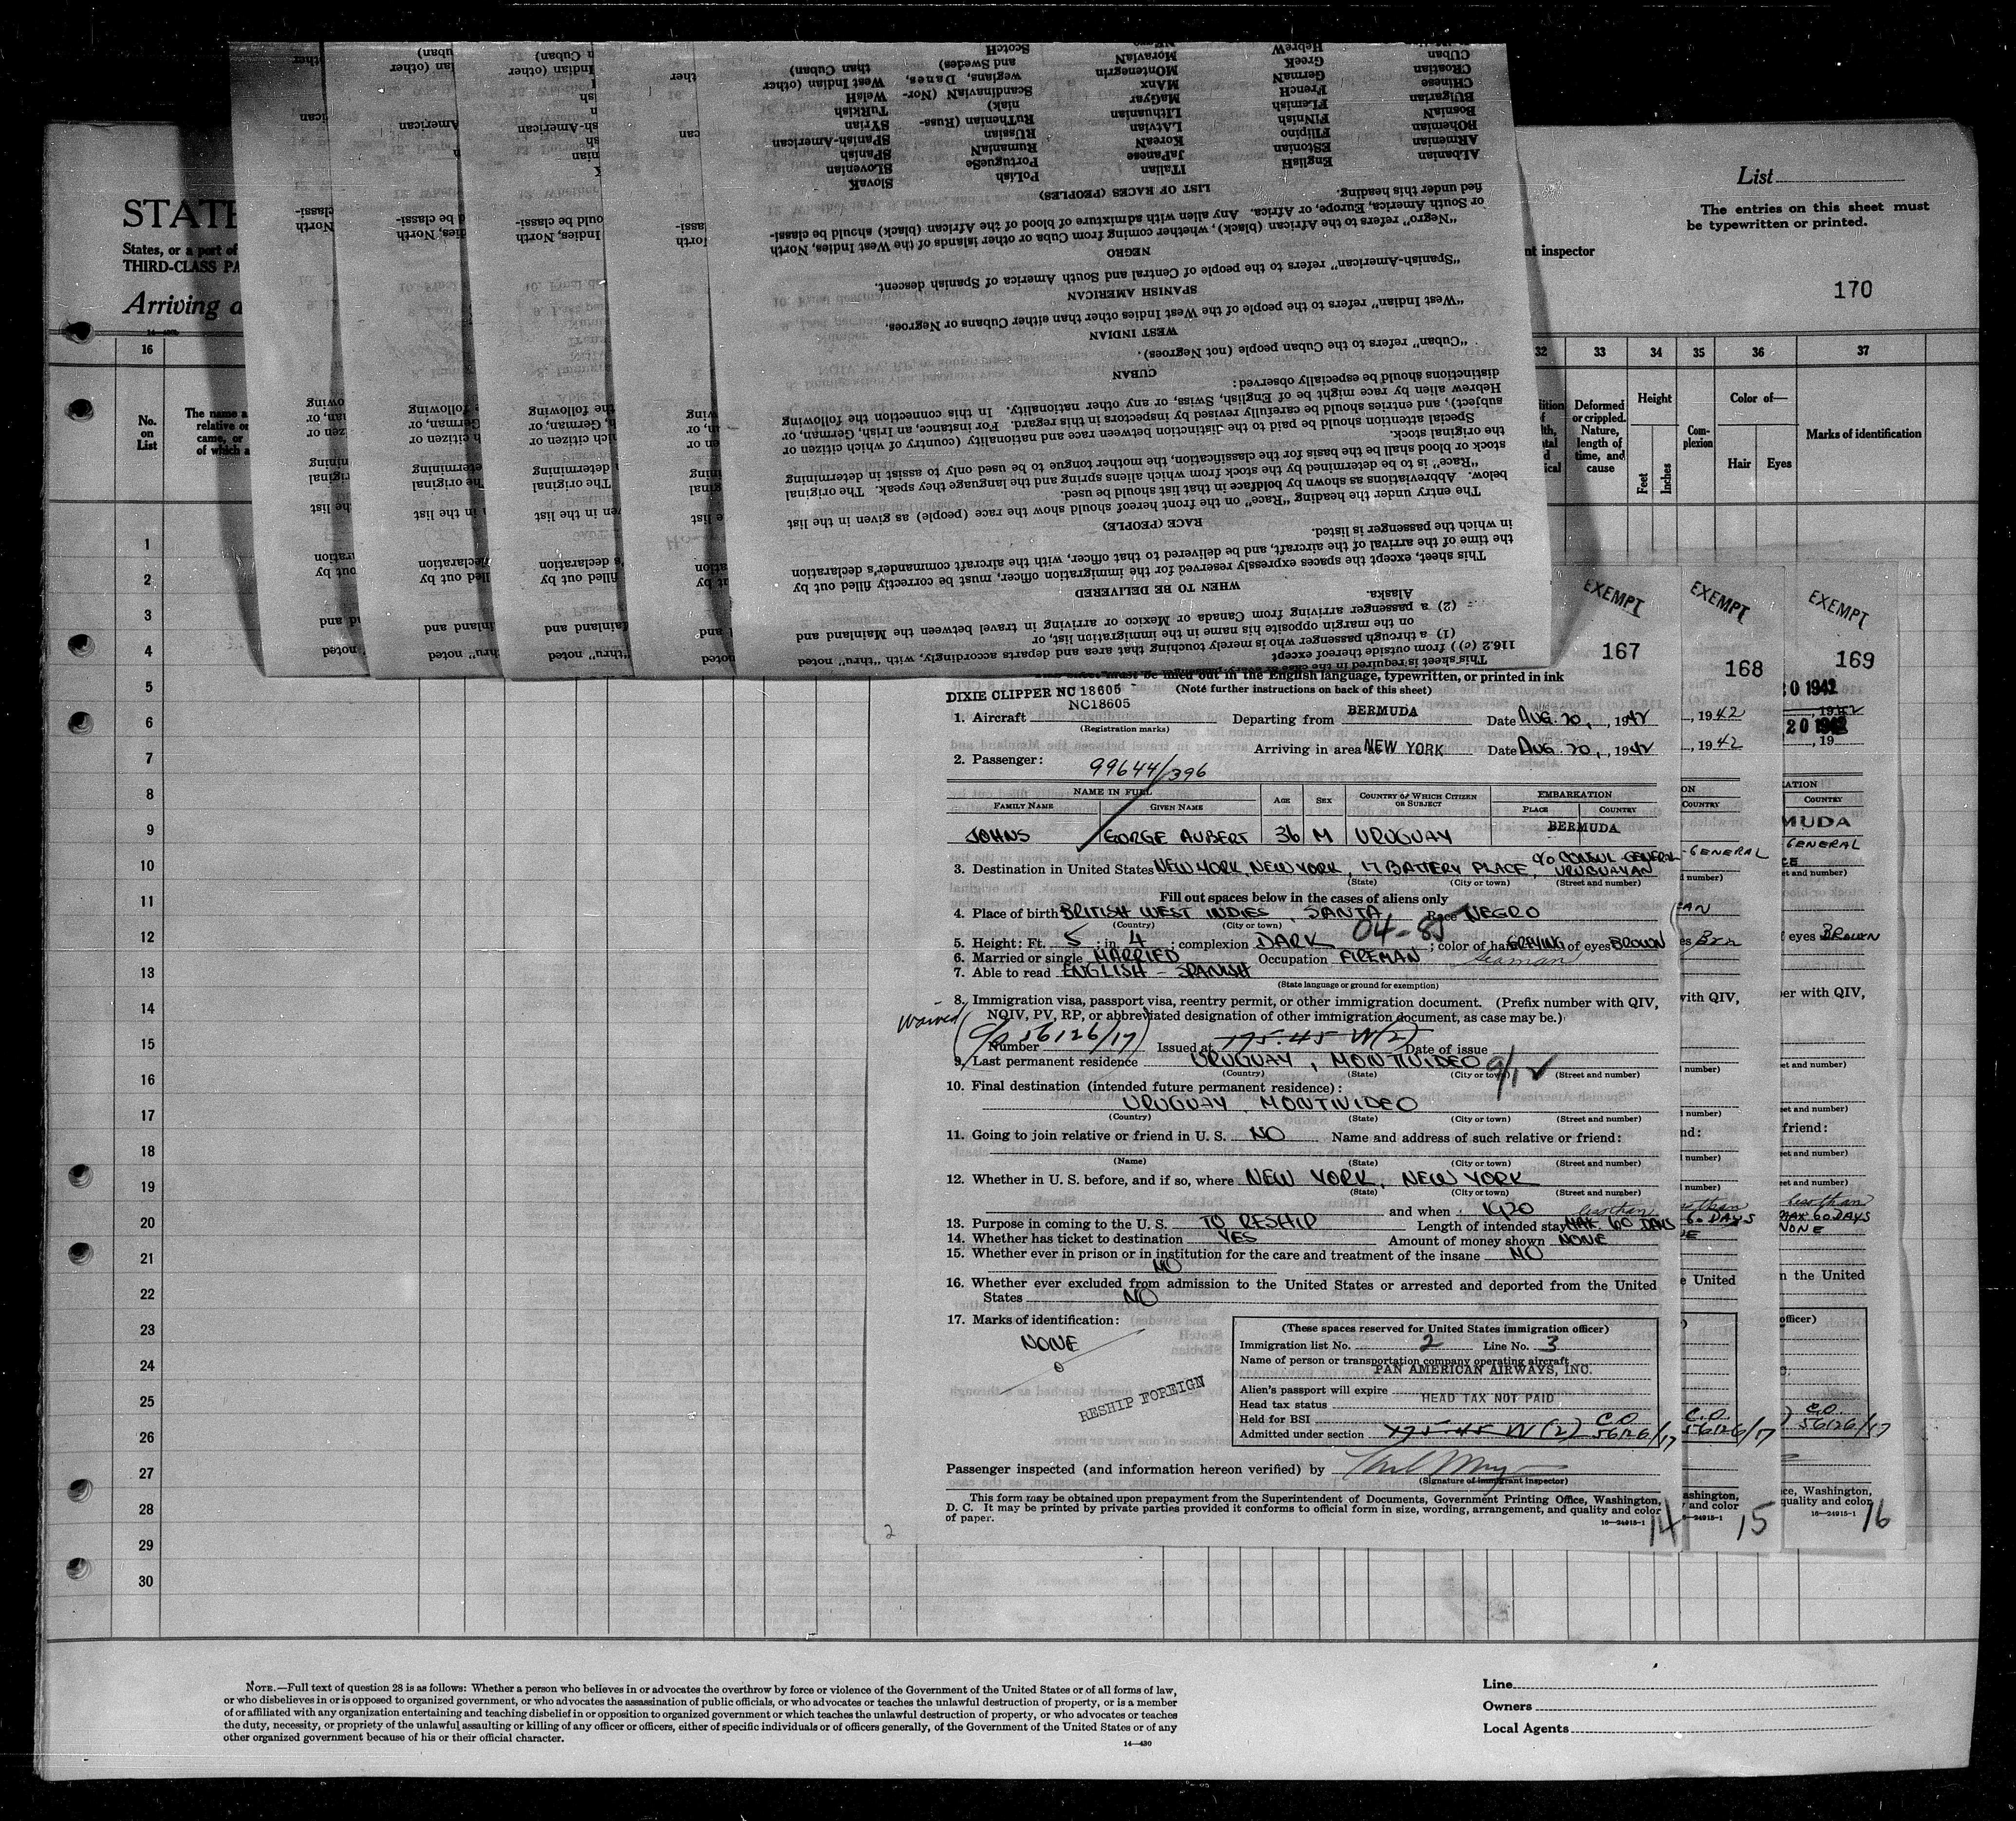 STATE
States, or a part of
THIRD-CLASS PA
Arriving a
List
The entries on this sheet must
be typewritten or printed.
nt inspector
170
16
32
33
34
35
36
37
No.
on
List
The name a
relative or
came, or
of which a
Deformed
or crippled.
Nature,
length of
time, and
cause
Height
Feet
Inches
Com-
plexion
Color of—
Hair
Eyes
Marks of identification
1
2
3
4
5
6
7
8
9
10
11
12
13
14
15
16
17
18
19
20
21
22
23
24
25
26
27
28
29
30
This sheet is required in the case of every passenger
116.2 (c)) from outside thereof except
(1) a through passenger who is merely touching that area and departs accordingly, with "thru" noted
on the margin opposite his name in the immigration list, or
(2) a passenger arriving from Canada or Mexico or arriving in travel between the Mainland and
Alaska.
WHEN TO BE DELIVERED
This sheet, except the spaces expressly reserved for the immigration officer, must be correctly filled out by
the time of the arrival of the aircraft, and be delivered to that officer, with the aircraft commander's declaration
in which the passenger is listed.
RACE (PEOPLE)
The entry under the heading "Race" on the front hereof should show the race (people) as given in the list
below. Abbreviations as shown by boldface in that list should be used.
"Race" is to be determined by the stock from which aliens spring and the language they speak. The original
stock or blood shall be the basis for the classification, the mother tongue to be used only to assist in determining
the original stock.
Special attention should be paid to the distinction between race and nationality (country of which citizen or
subject), and entries should be carefully revised by inspectors in this regard. For instance, an Irish, German, or
Hebrew alien by race might be of English, Swiss, or any other nationality. In this connection the following
distinctions should be especially observed:
CUBAN
"Cuban" refers to the Cuban people (not Negroes).
WEST INDIAN
"West Indian" refers to the people of the West Indies other than either Cubans or Negroes.
SPANISH AMERICAN
"Spanish-American" refers to the people of Central and South America of Spanish descent.
NEGRO
"Negro" refers to the African (black), whether coming from Cuba or other islands of the West Indies, North
or South America, Europe, or Africa. Any alien with admixture of blood of the African (black) should be classi-
fied under this heading.
LIST OF RACES (PEOPLES)
ALbanian EnglisH ITalian PoLish SlovaK
ARmenian EStonian JaPanese PortugueSe SLOvenian
BOhemian FIlipino KoreaN RumaniaN SPanish
BosniaN FINnish LATvian RUssian SPanish-American
BUlgarian FLemish LIthuanian RuThenian (Russ- SYrian
CHinese FrencH MaGyar niak) TuRkish
CRoatian GermaN MAnx ScandinaviaN (Nor- WelsH
CUban GreeK MOntenegrin wegians, Danes, West Indian (other
HebreW MoraviaN and Swedes) than Cuban)
ScotcH
must be filled out in the English language, typewritten, or printed in ink
(Note further instructions on back of this sheet)
DIXIE CLIPPER NC 18605
NC18605
1. Aircraft Departing from BERMUDA Date AUG. 20, , 1942
(Registration marks)
Arriving in area NEW YORK Date AUG. 20, , 1942
2. Passenger:
99644/396
NAME IN FULL
FAMILY NAME GIVEN NAME AGE SEX COUNTRY OF WHICH CITIZEN OR SUBJECT EMBARKATION
PLACE COUNTRY
JOHNS GEORGE AUBERT 36 M URUGUAY BERMUDA
3. Destination in United States NEW YORK, NEW YORK, 17 BATTERY PLACE, c/o CONSUL GENERAL URUGUAYAN
(State) (City or town) (Street and number)
Fill out spaces below in the cases of aliens only
4. Place of birth BRITISH WEST INDIES, SANTA Race NEGRO
(Country) (City or town)
04-85
5. Height: Ft. 5 ; in. 4 ; complexion DARK ; color of hair GREYING of eyes BROWN
6. Married or single MARRIED Occupation FIREMAN seaman
7. Able to read ENGLISH - SPANISH
(State language or ground for exemption)
8. Immigration visa, passport visa, reentry permit, or other immigration document. (Prefix number with QIV,
NQIV, PV, RP, or abbreviated designation of other immigration document, as case may be.)
Waived
Number C/O 56126/17 Issued at 175.45 W(2) Date of issue
9. Last permanent residence URUGUAY, MONTIVIDEO 9/12
(Country) (State) (City or town) (Street and number)
10. Final destination (intended future permanent residence):
URUGUAY, MONTIVIDEO
(Country) (State) (City or town) (Street and number)
11. Going to join relative or friend in U. S. NO Name and address of such relative or friend:
(Name) (State) (City or town) (Street and number)
12. Whether in U. S. before, and if so, where NEW YORK, NEW YORK
(State) (City or town) (Street and number)
and when 1920 less than
13. Purpose in coming to the U. S. TO RESHIP Length of intended stay MAX. 60 DAYS
14. Whether has ticket to destination YES Amount of money shown NONE
15. Whether ever in prison or in institution for the care and treatment of the insane NO
NO
16. Whether ever excluded from admission to the United States or arrested and deported from the United
States NO
17. Marks of identification:
NONE
RESHIP FOREIGN
(These spaces reserved for United States immigration officer)
Immigration list No. 2 Line No. 3
Name of person or transportation company operating aircraft
PAN AMERICAN AIRWAYS, INC.
Alien's passport will expire
Head tax status HEAD TAX NOT PAID
Held for BSI C.O.
Admitted under section 175.45 W (2) 56126/17
Passenger inspected (and information hereon verified) by
(Signature of immigrant inspector)
This form may be obtained upon prepayment from the Superintendent of Documents, Government Printing Office, Washington,
D. C. It may be printed by private parties provided it conforms to official form in size, wording, arrangement, and quality and color
of paper.
16—24915-1
2
14
EXEMPT
167
EXEMPT
168
, 1942
, 1942
COUNTRY
-GENERAL
Brn
with QIV,
60 DAYS
e United
C.O.
56126/17
15
EXEMPT
169
20 1942
20 1942
, 19
COUNTRY
MUDA
GENERAL
eyes BROWN
er with QIV,
friend:
less than
MAX 60 DAYS
NONE
n the United
officer)
C.O.
56126/17
ce, Washington,
quality and color
16—24915-1
16
NOTE.—Full text of question 28 is as follows: Whether a person who believes in or advocates the overthrow by force or violence of the Government of the United States or of all forms of law,
or who disbelieves in or is opposed to organized government, or who advocates the assassination of public officials, or who advocates or teaches the unlawful destruction of property, or is a member
of or affiliated with any organization entertaining and teaching disbelief in or opposition to organized government or which teaches the unlawful destruction of property, or who advocates or teaches
the duty, necessity, or propriety of the unlawful assaulting or killing of any officer or officers, either of specific individuals or of officers generally, of the Government of the United States or of any
other organized government because of his or their official character.
14—430
Line
Owners
Local Agents